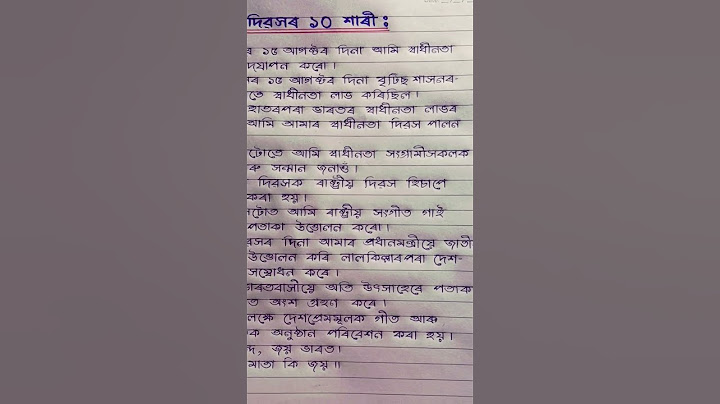 দিৱসৰ ১০ শাৰী :
ৰ ১৫ আগষ্টৰ দিনা আমি স্বাধীনতা
দযাপন কৰো।
নৰ ১৫ আগষ্টৰ দিনা বৃটিছ শাসনৰ-
তে স্বাধীনতা লাভ কৰিছিল।
হাতৰপৰা ভাৰতৰ স্বাধীনতা লাভৰ
আমি আমাৰ স্বাধীনতা দিৱস পালন
টোতে আমি স্বাধীনতা সংগ্ৰামীসকলক
ৰু সন্মান জনাওঁ।
দিৱসক ৰাষ্ট্ৰীয় দিৱস হিচাপে
কৰা হয়।
নটোত আমি ৰাষ্ট্ৰীয় সংগীত গাই
পতাকা উত্তোলন কৰো।
ৱসৰ দিনা আমাৰ প্ৰধানমন্ত্ৰীয়ে জাতী
উত্তোলন কৰি লালকিল্লাৰপৰা দেশ-
সম্বোধন কৰে।
ভাৰতবাসীয়ে অতি উৎসাহেৰে পতাকা
ত অংশ গ্ৰহণ কৰে।
লক্ষে দেশপ্ৰেমমূলক গীত আৰু
ক অনুষ্ঠান পৰিবেশন কৰা হয়।
ন্দ, জয় ভাৰত।
মাতা কি জয়॥